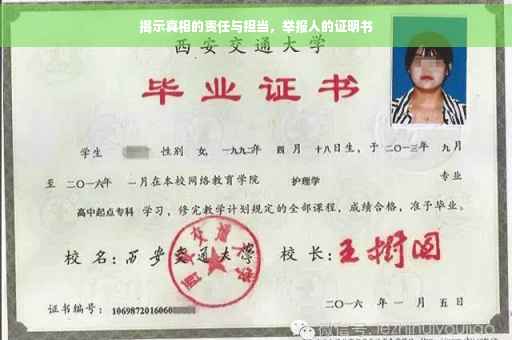 揭示真相的责任与担当，举报人的证明书
西安交通大学
毕业证书
学生 性别 女，一九九二年 四 月 十八日生，于 二〇一三年 九月
至 二〇一六年 一月在本校网络教育学院 护理学 专业
高中起点专科 学习，修完教学计划规定的全部课程，成绩合格，准予毕业。
校 名：西安交通大学 校 长：王树国
西安交通大学
证书编号： 1069872016060
二〇一六 年 一 月 五 日
微信号: jezhinuiyoujiao